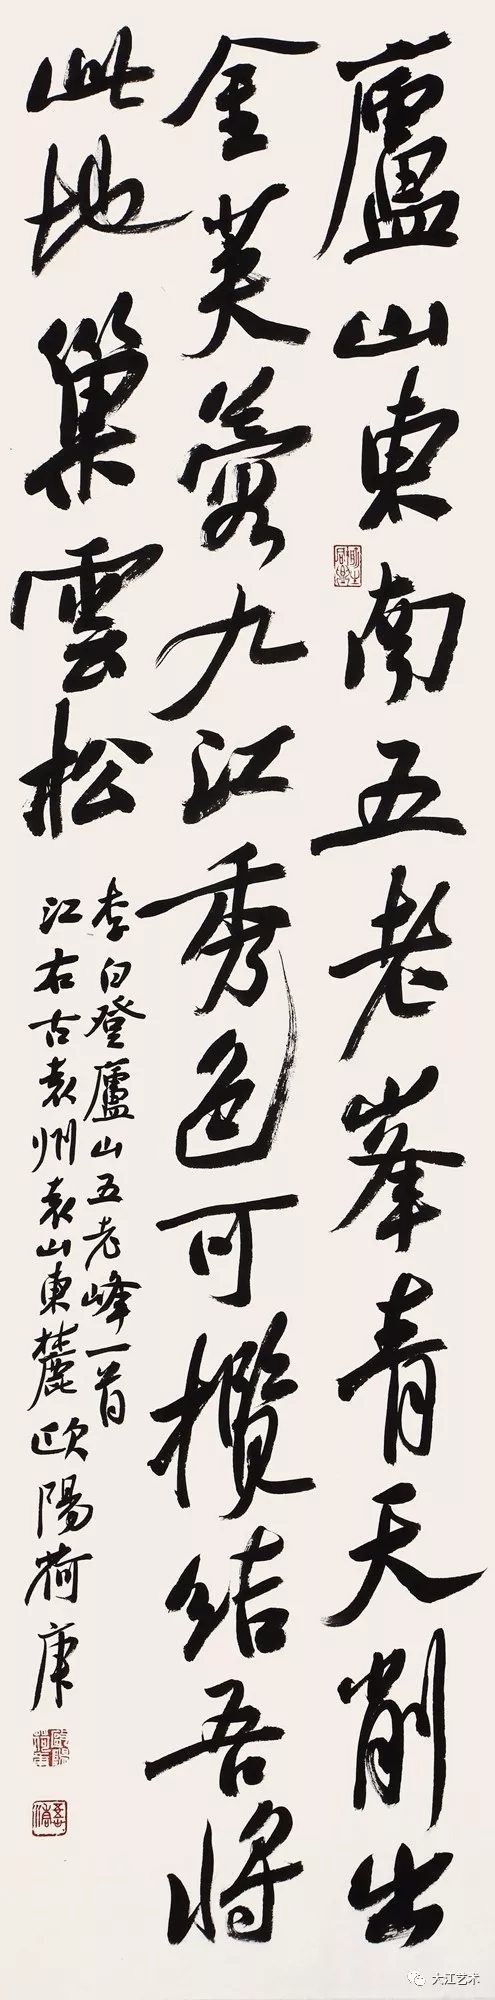 廬山東南五老峯青天削出
金芙蓉九江秀色可攬結吾將
此地巢雲松
李白登廬山五老峰一首
江右古袁州袁山東麓歐陽荷庚
大江艺术